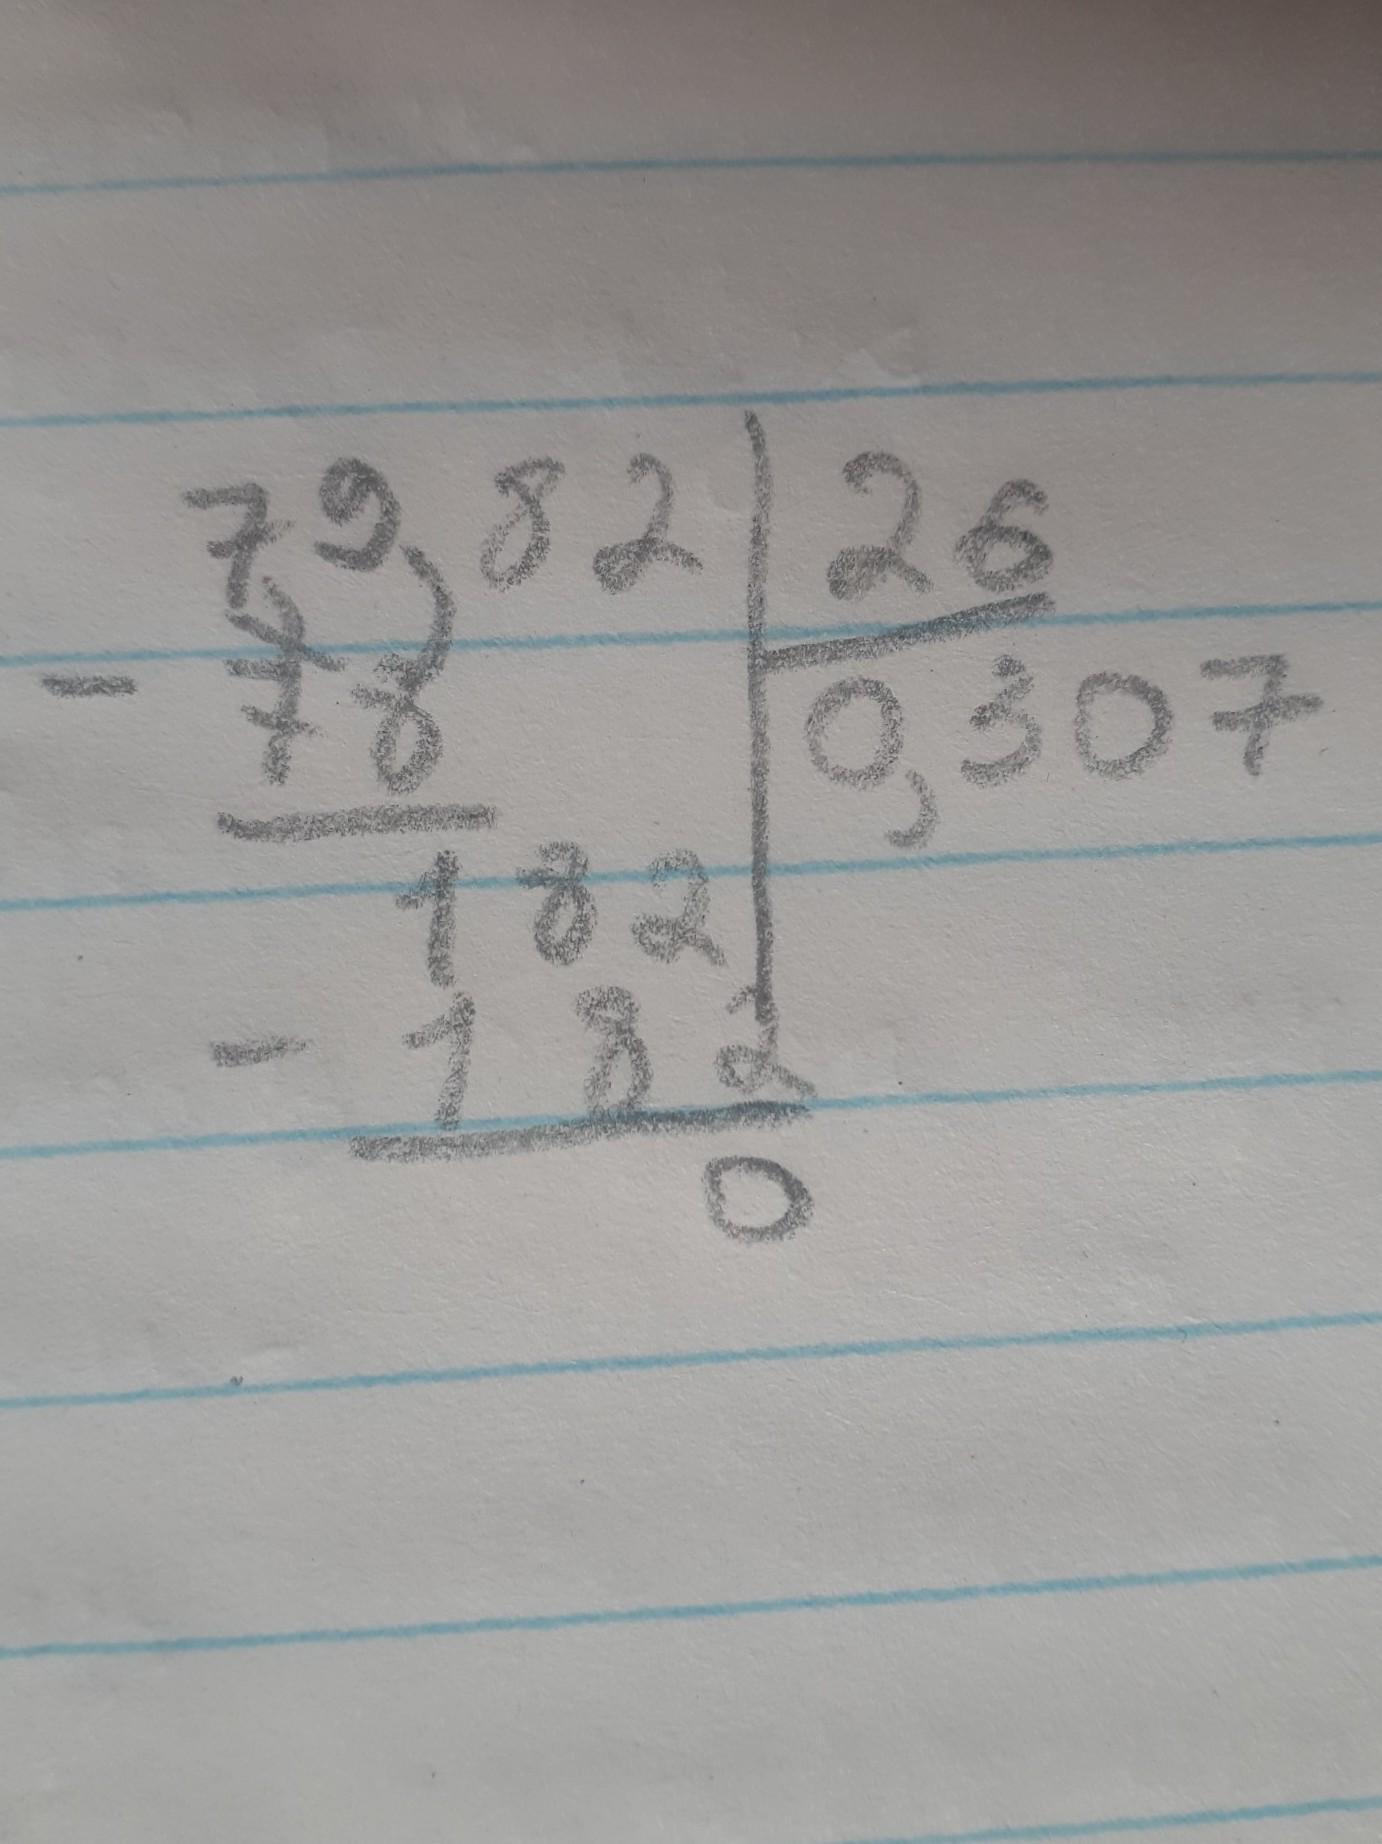 79,82 26
- 78 0,307
182
- 182
0